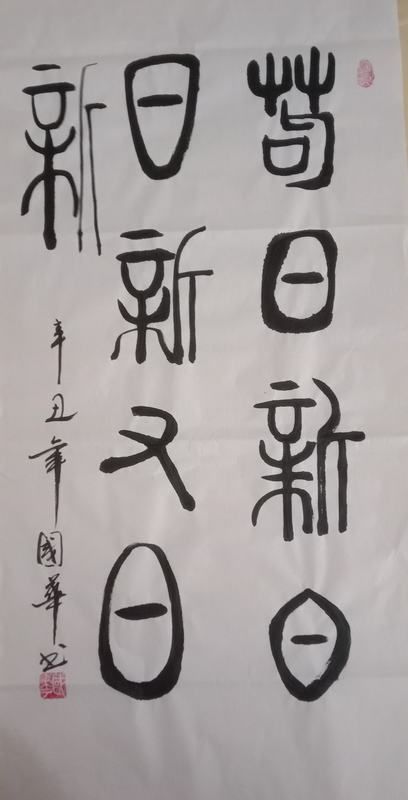 苟日新日
日新又日
新
辛丑年國華书